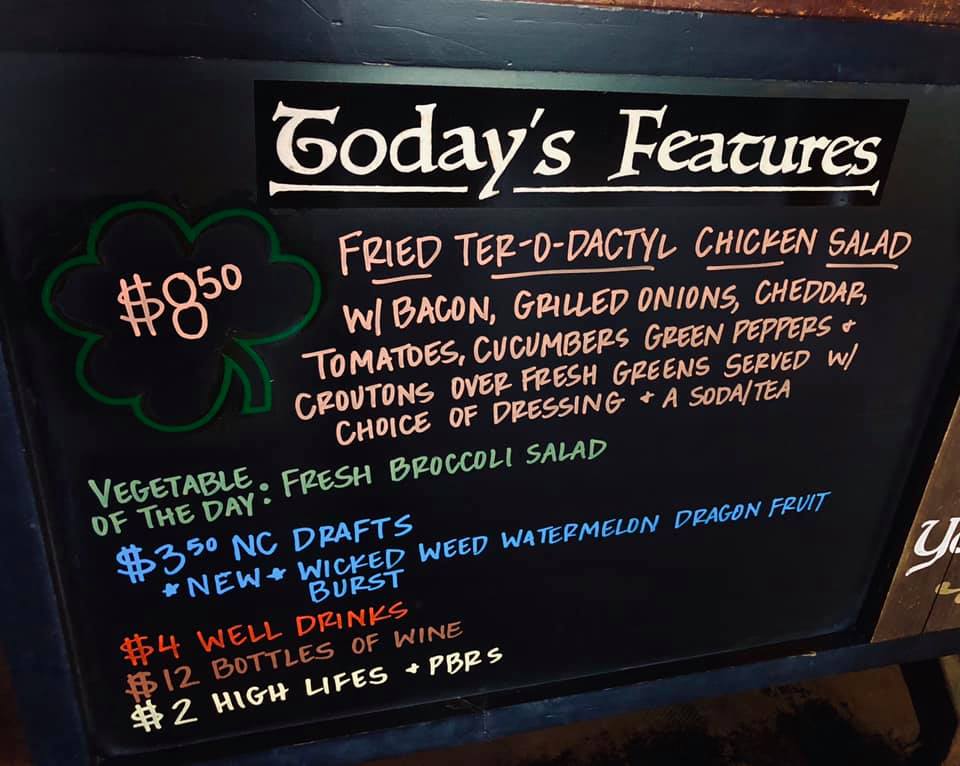 Today's Features
$8.50
FRIED TER-O-DACTYL CHICKEN SALAD
W/ BACON, GRILLED ONIONS, CHEDDAR,
TOMATOES, CUCUMBERS GREEN PEPPERS +
CROUTONS OVER FRESH GREENS SERVED W/
CHOICE OF DRESSING + A SODA/TEA
VEGETABLE
OF THE DAY: FRESH BROCCOLI SALAD
$3.50 NC DRAFTS
*NEW* WICKED WEED WATERMELON DRAGON FRUIT
BURST
$4 WELL DRINKS
$12 BOTTLES OF WINE
$2 HIGH LIFES + PBRS